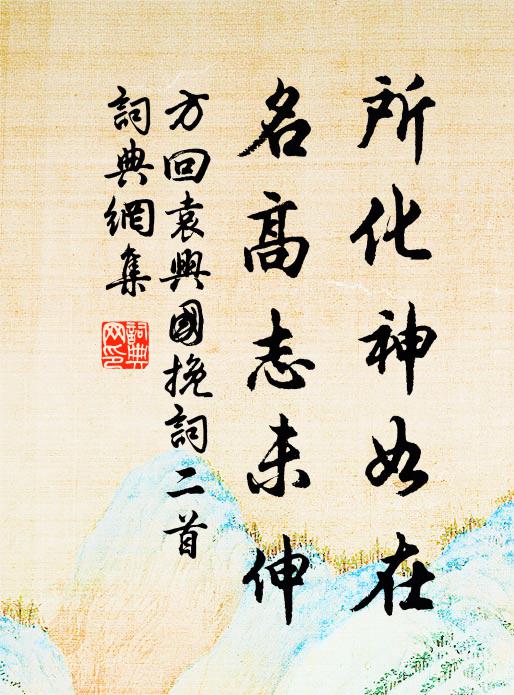 所化神如在
名高志未伸
方回袁興國挽詞二首
詞典網集
詞典
网印